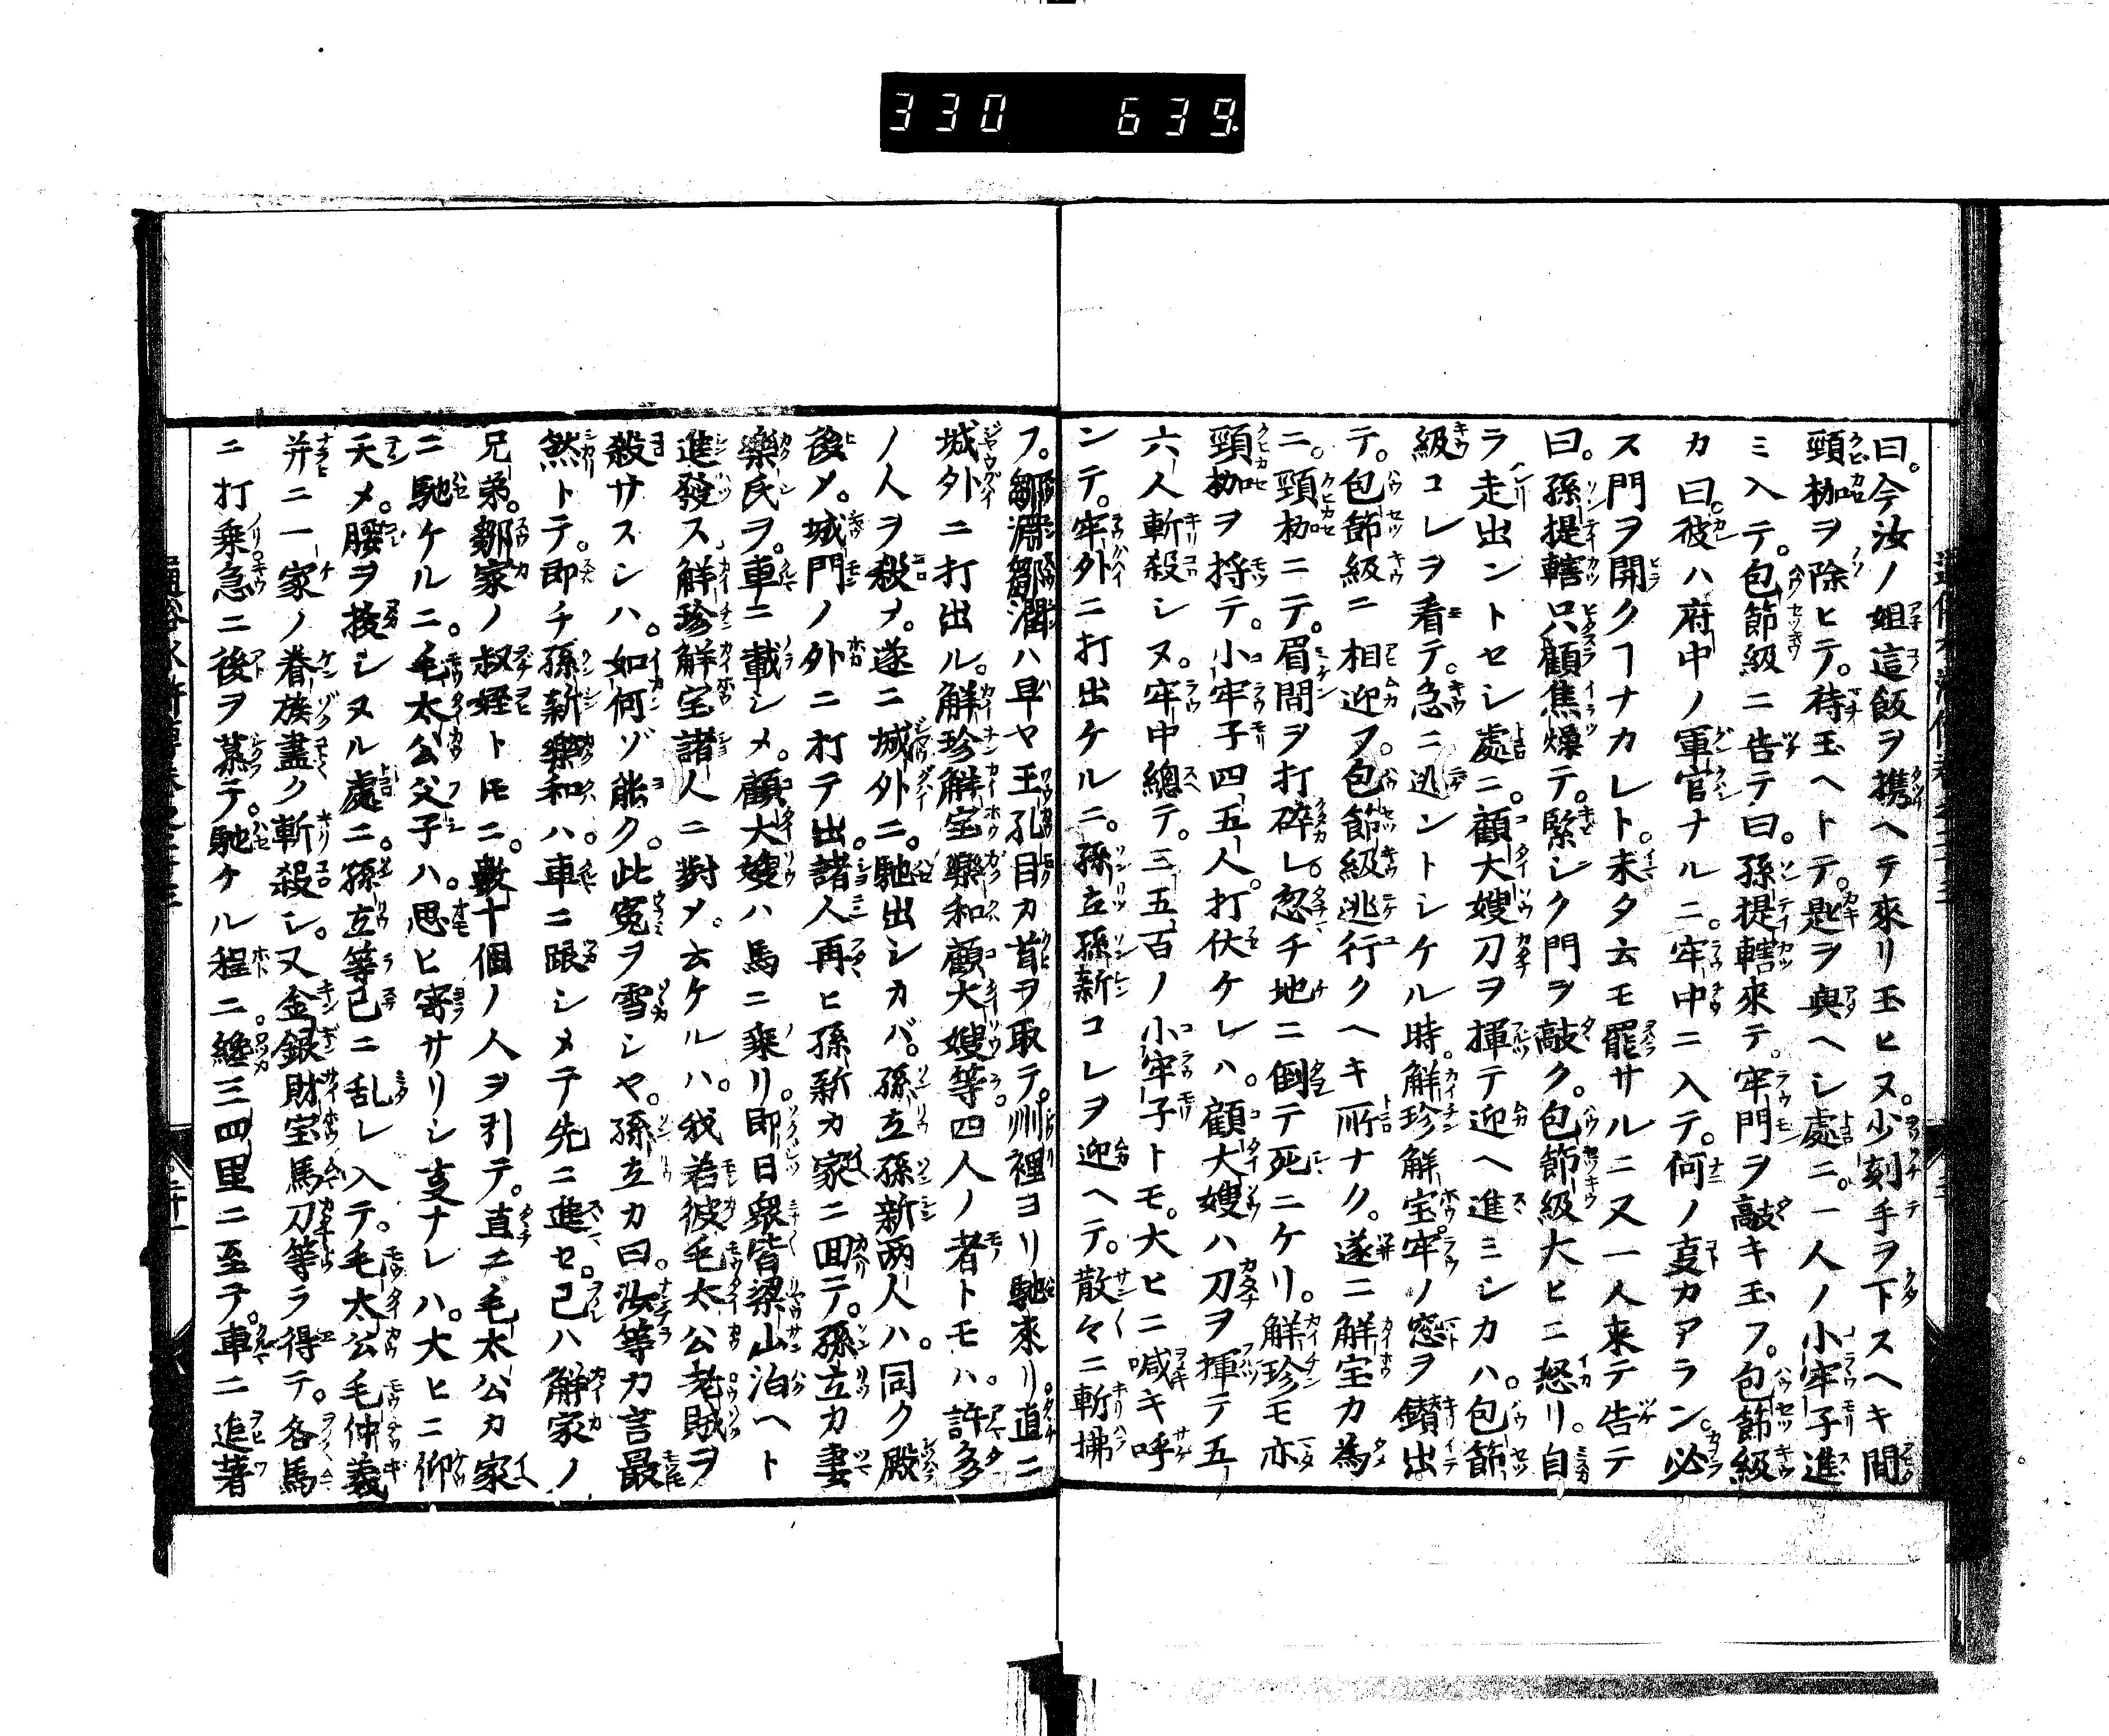 330 639.
曰。今汝ノ姐這飯ヲ攜ヘテ來リ玉ヒヌ。少刻手ヲ下スヘキ間
頸枷ヲ除ヒテ。待玉ヘトテ。匙ヲ與ヘシ處ニ。一人ノ小牢子進
ミ入テ。包節級ニ告テ曰。孫提轄來テ。牢門ヲ敲キ玉フ。包節級
カ曰。彼ハ府中ノ軍官ナルニ。牢中ニ入テ。何ノ叓カアラン。必
ス門ヲ開クヿナカレト。未タ云モ罷サルニ又一人來テ告テ
曰。孫提轄只顧焦燥テ。緊シク門ヲ敲ク。包節級大ヒニ怒リ。自
ラ走出ントセシ處ニ。顧大嫂刀ヲ揮テ迎ヘ進ミシカハ。包節
級コレヲ看テ。急ニ逃ントシケル時。解珍解宝牢ノ窓ヲ鑚出
テ。包節級ニ相迎フ。包節級逃行クヘキ所ナク。遂ニ解宝カ為
ニ。頸枷ニテ。眉間ヲ打碎レ。忽チ地ニ倒テ死ニケリ。解珍モ亦
頸枷ヲ捋テ。小牢子四五人。打伏ケレハ。顧大嫂ハ刀ヲ揮テ五
六人斬殺シヌ。牢中總テ。三五百ノ小牢子トモ。大ヒニ喊キ呼
ンテ。牢外ニ打出ケルニ。孫立孫新コレヲ迎ヘテ。散々ニ斬拂
フ。鄒淵鄒潤ハ早ヤ王孔目カ首ヲ取テ。州裡ヨリ馳來リ。直ニ
城外ニ打出ル。解珍解宝樂和顧大嫂等。四人ノ者トモハ。許多
ノ人ヲ殺メ。遂ニ城外ニ。馳出シカバ。孫立孫新兩人ハ。同ク殿
後メ。城門ノ外ニ打テ出。諸人再ヒ孫新カ家ニ囘テ。孫立カ妻
樂氏ヲ。車ニ載シメ。顧大嫂ハ馬ニ乘リ。即日衆皆梁山泊ヘト
進發ス。解珍解宝諸人ニ對メ。云ケルハ。我若彼毛太公老賊ヲ
殺サスンハ。如何ゾ能ク。此寃ヲ雪シヤ。孫立カ曰。汝等カ言最
然トテ。即チ孫新樂和ハ。車ニ跟シメテ先ニ進セ。己ハ解家ノ
兄弟。鄒家ノ叔姪トモニ。數十個ノ人ヲ引テ。直ニ毛太公カ家
ニ馳ケルニ。毛太公父子ハ。思ヒ寄サリシ叓ナレハ。大ヒニ仰
天メ。腰ヲ拔シヌル處ニ。孫立等已ニ乱レ入テ。毛太公毛仲義
并ニ一家ノ眷族盡ク斬殺シ。又金銀財宝馬刀等ラ得テ。各馬
ニ打乘急ニ後ヲ慕テ。馳ケル程ニ。纔三四里ニ至テ。車ニ追著